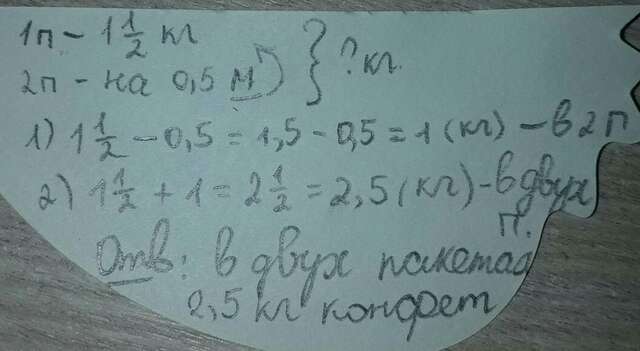 1п - 1 1/2 кг
2п - на 0,5 м } ? кг
1) 1 1/2 - 0,5 = 1,5 - 0,5 = 1 (кг) - в 2 п
2) 1 1/2 + 1 = 2 1/2 = 2,5 (кг) - в двух
п.
Отв: в двух пакетах
2,5 кг конфет